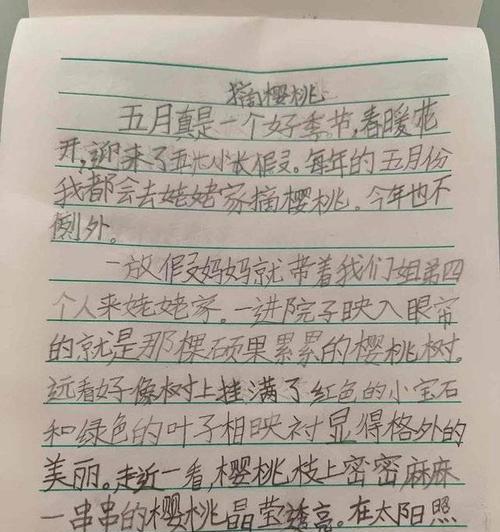 摘樱桃
五月真是一个好季节,春暖花
开,迎来了五一小长假。每年的五月份
我都会去姥姥家摘樱桃。今年也不
例外。
一放假妈妈就带着我们姐弟四
个人来姥姥家。一进院子映入眼帘
的就是那棵硕果累累的樱桃树。
远看好像树上挂满了红色的小宝石
和绿色的叶子相映衬显得格外的
美丽。走近一看,樱桃枝上密密麻麻
一串串的樱桃晶莹透亮。在太阳照